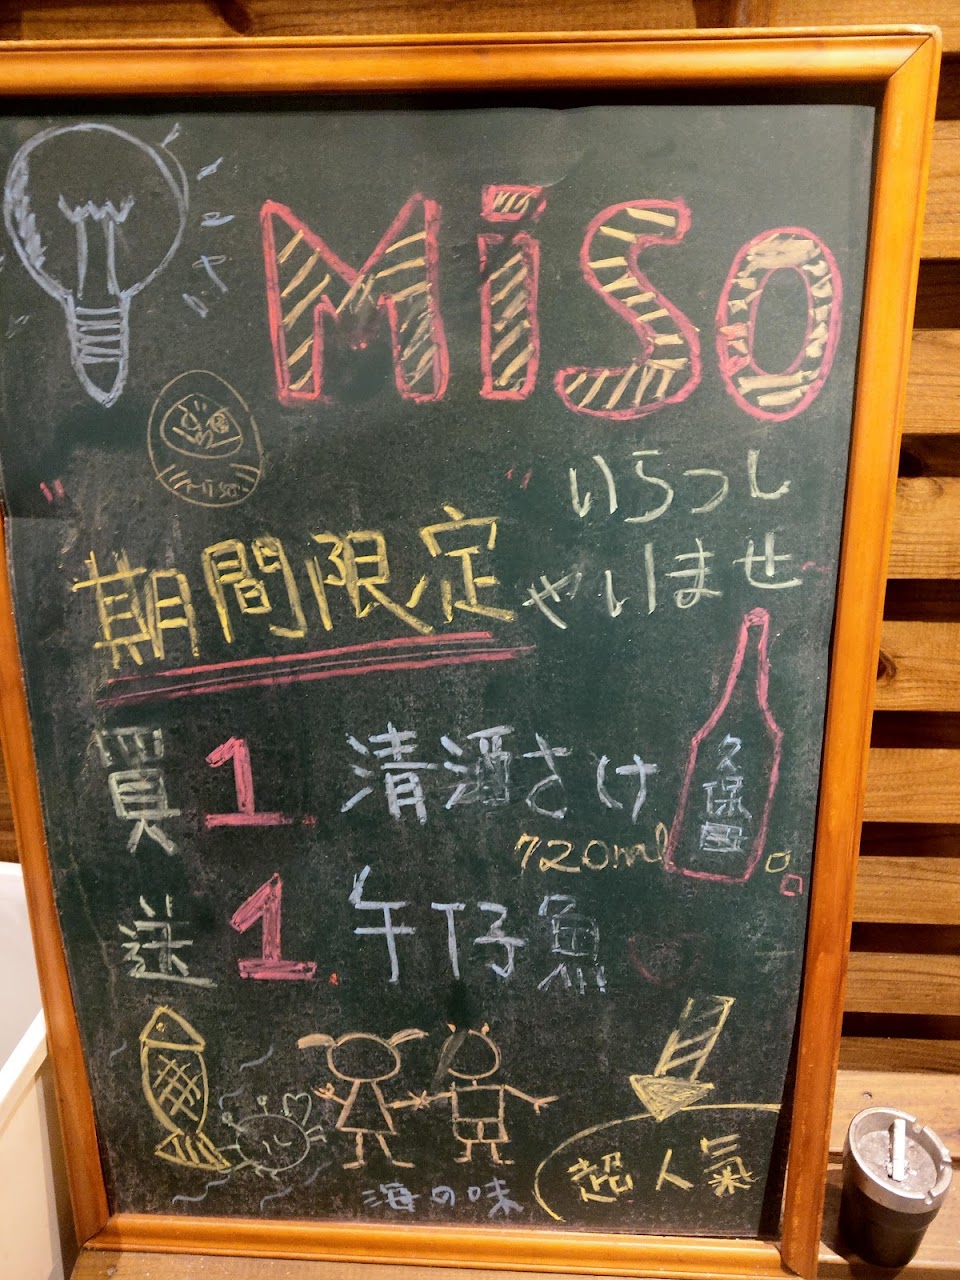 MiSo
Miso
いらっし
ゃいませ
"期間限定"
買1 清酒さけ
720ml
久保田
送1 午仔魚
海の味
超人氣